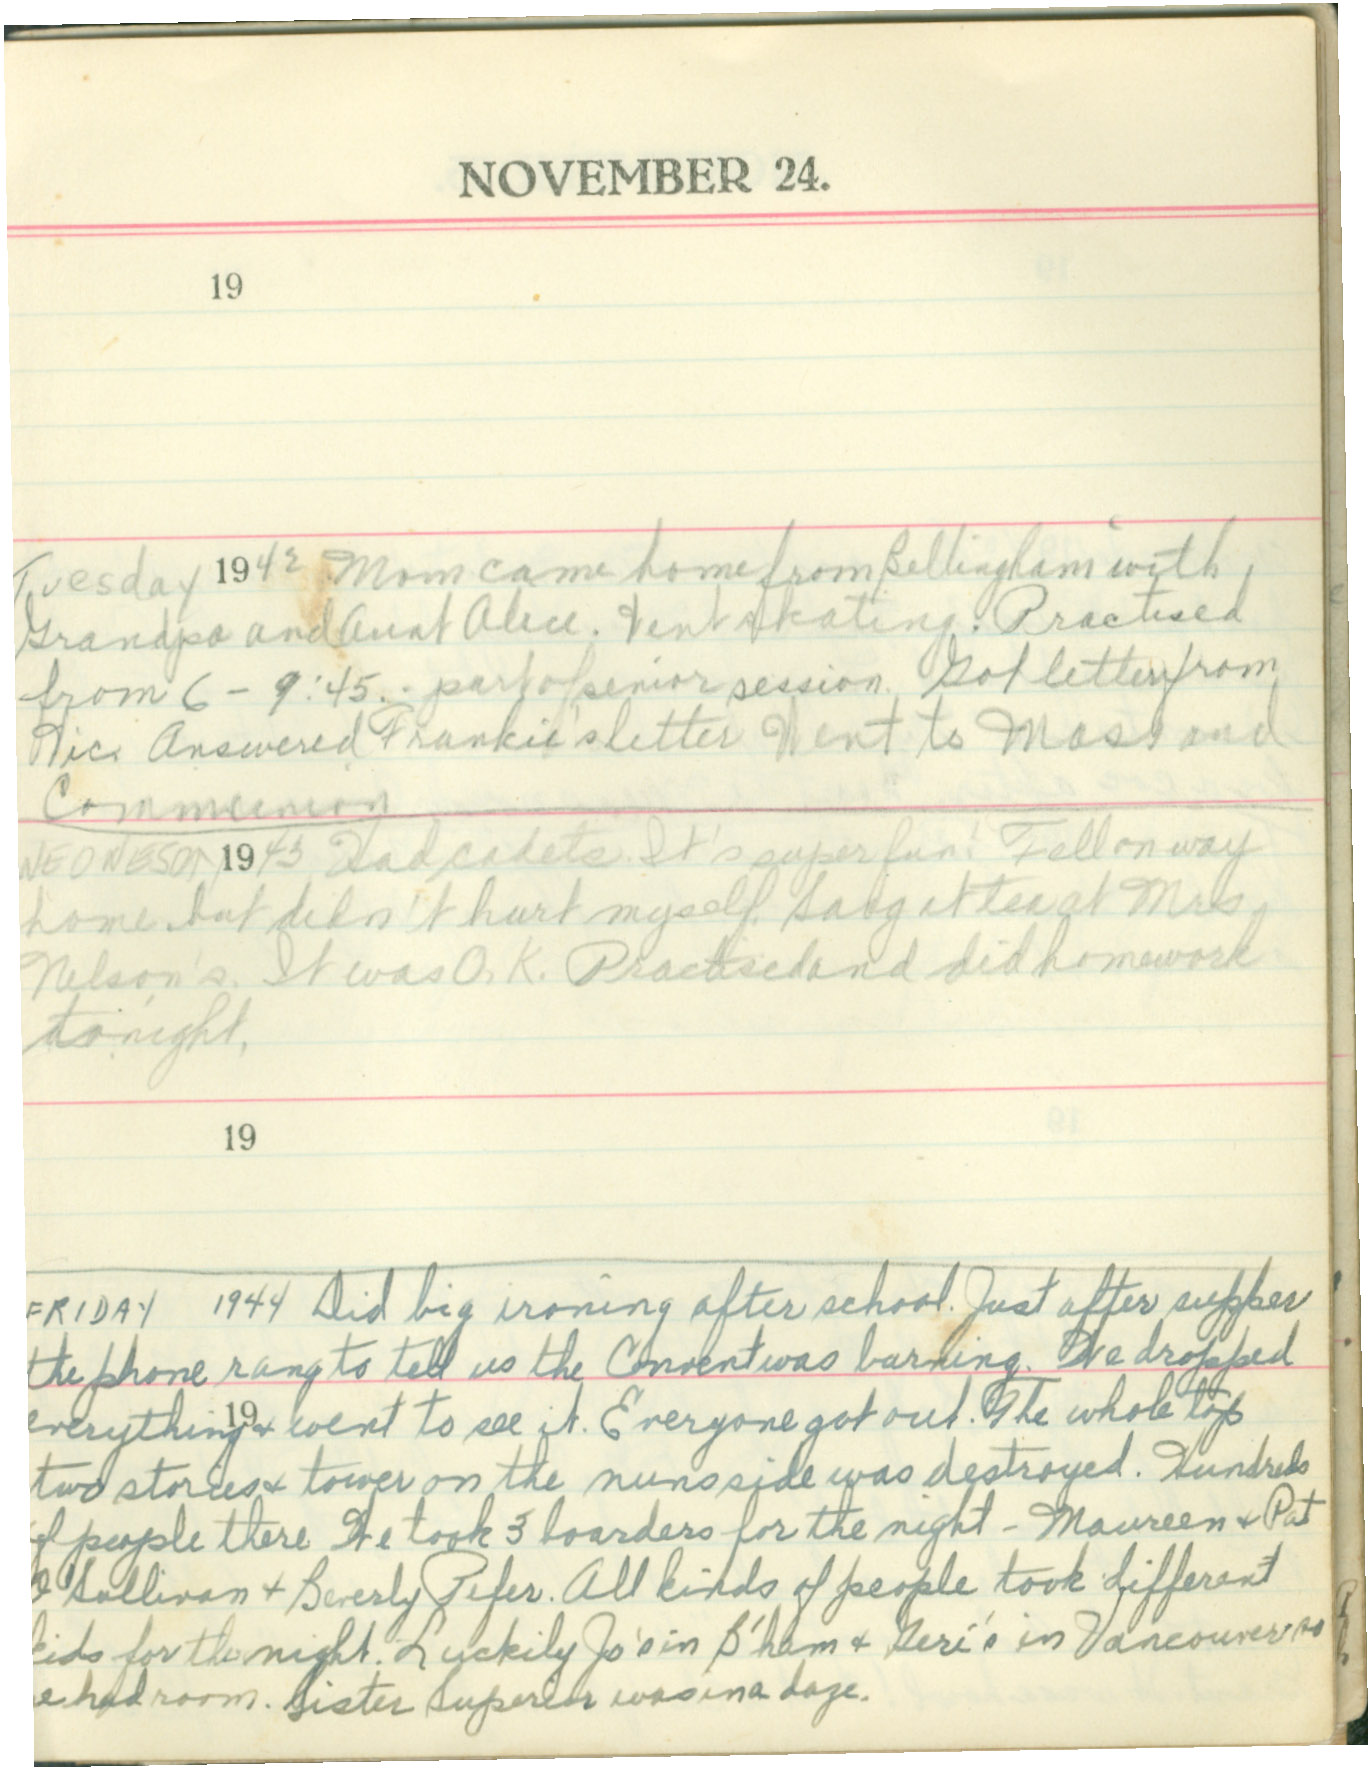 NOVEMBER 24.
19
Tuesday 1942 Mom came home from Bellingham with
Grandpa and Aunt Alice. Went skating. Practised
from 6 - 9:45. - part of senior session. Got letter from
Vic. Answered Frankie's letter Went to Mass and
Communion
WEDNESDAY 1943 Had cadets. It's super fun! Fell on way
home but didn't hurt myself. Sang at tea at Mrs.
Nelson's. It was O.K. Practised and did homework
tonight.
19
FRIDAY 1944 Did big ironing after school. Just after supper
the phone rang to tell us the Convent was burning. We dropped
everything & went to see it. Everyone got out. The whole top
19
two stories & tower on the nuns side was destroyed. Hundreds
of people there We took 3 boarders for the night - Maureen & Pat
O'Sullivan & Beverly Pifer. All kinds of people took different
kids for the night. Luckily Jo's in B'ham & Geri's in Vancouver so
e had room. Sister Superior was in a daze.